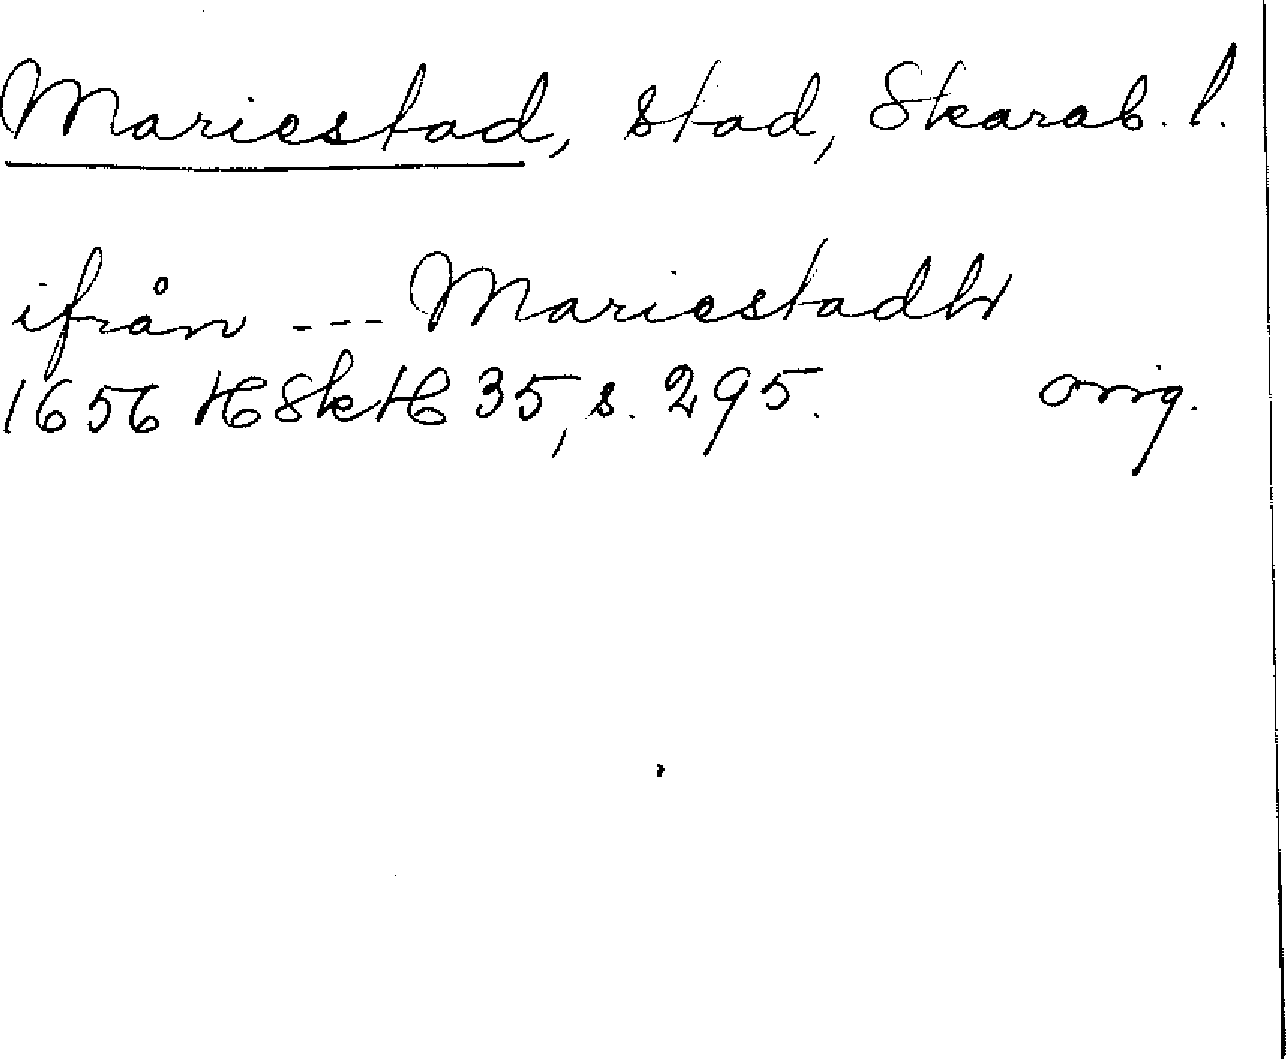 Mariestad, stad, Skarab. l.
ifrån --- Mariestadh
1656 HSkH 35, s. 295. orig.